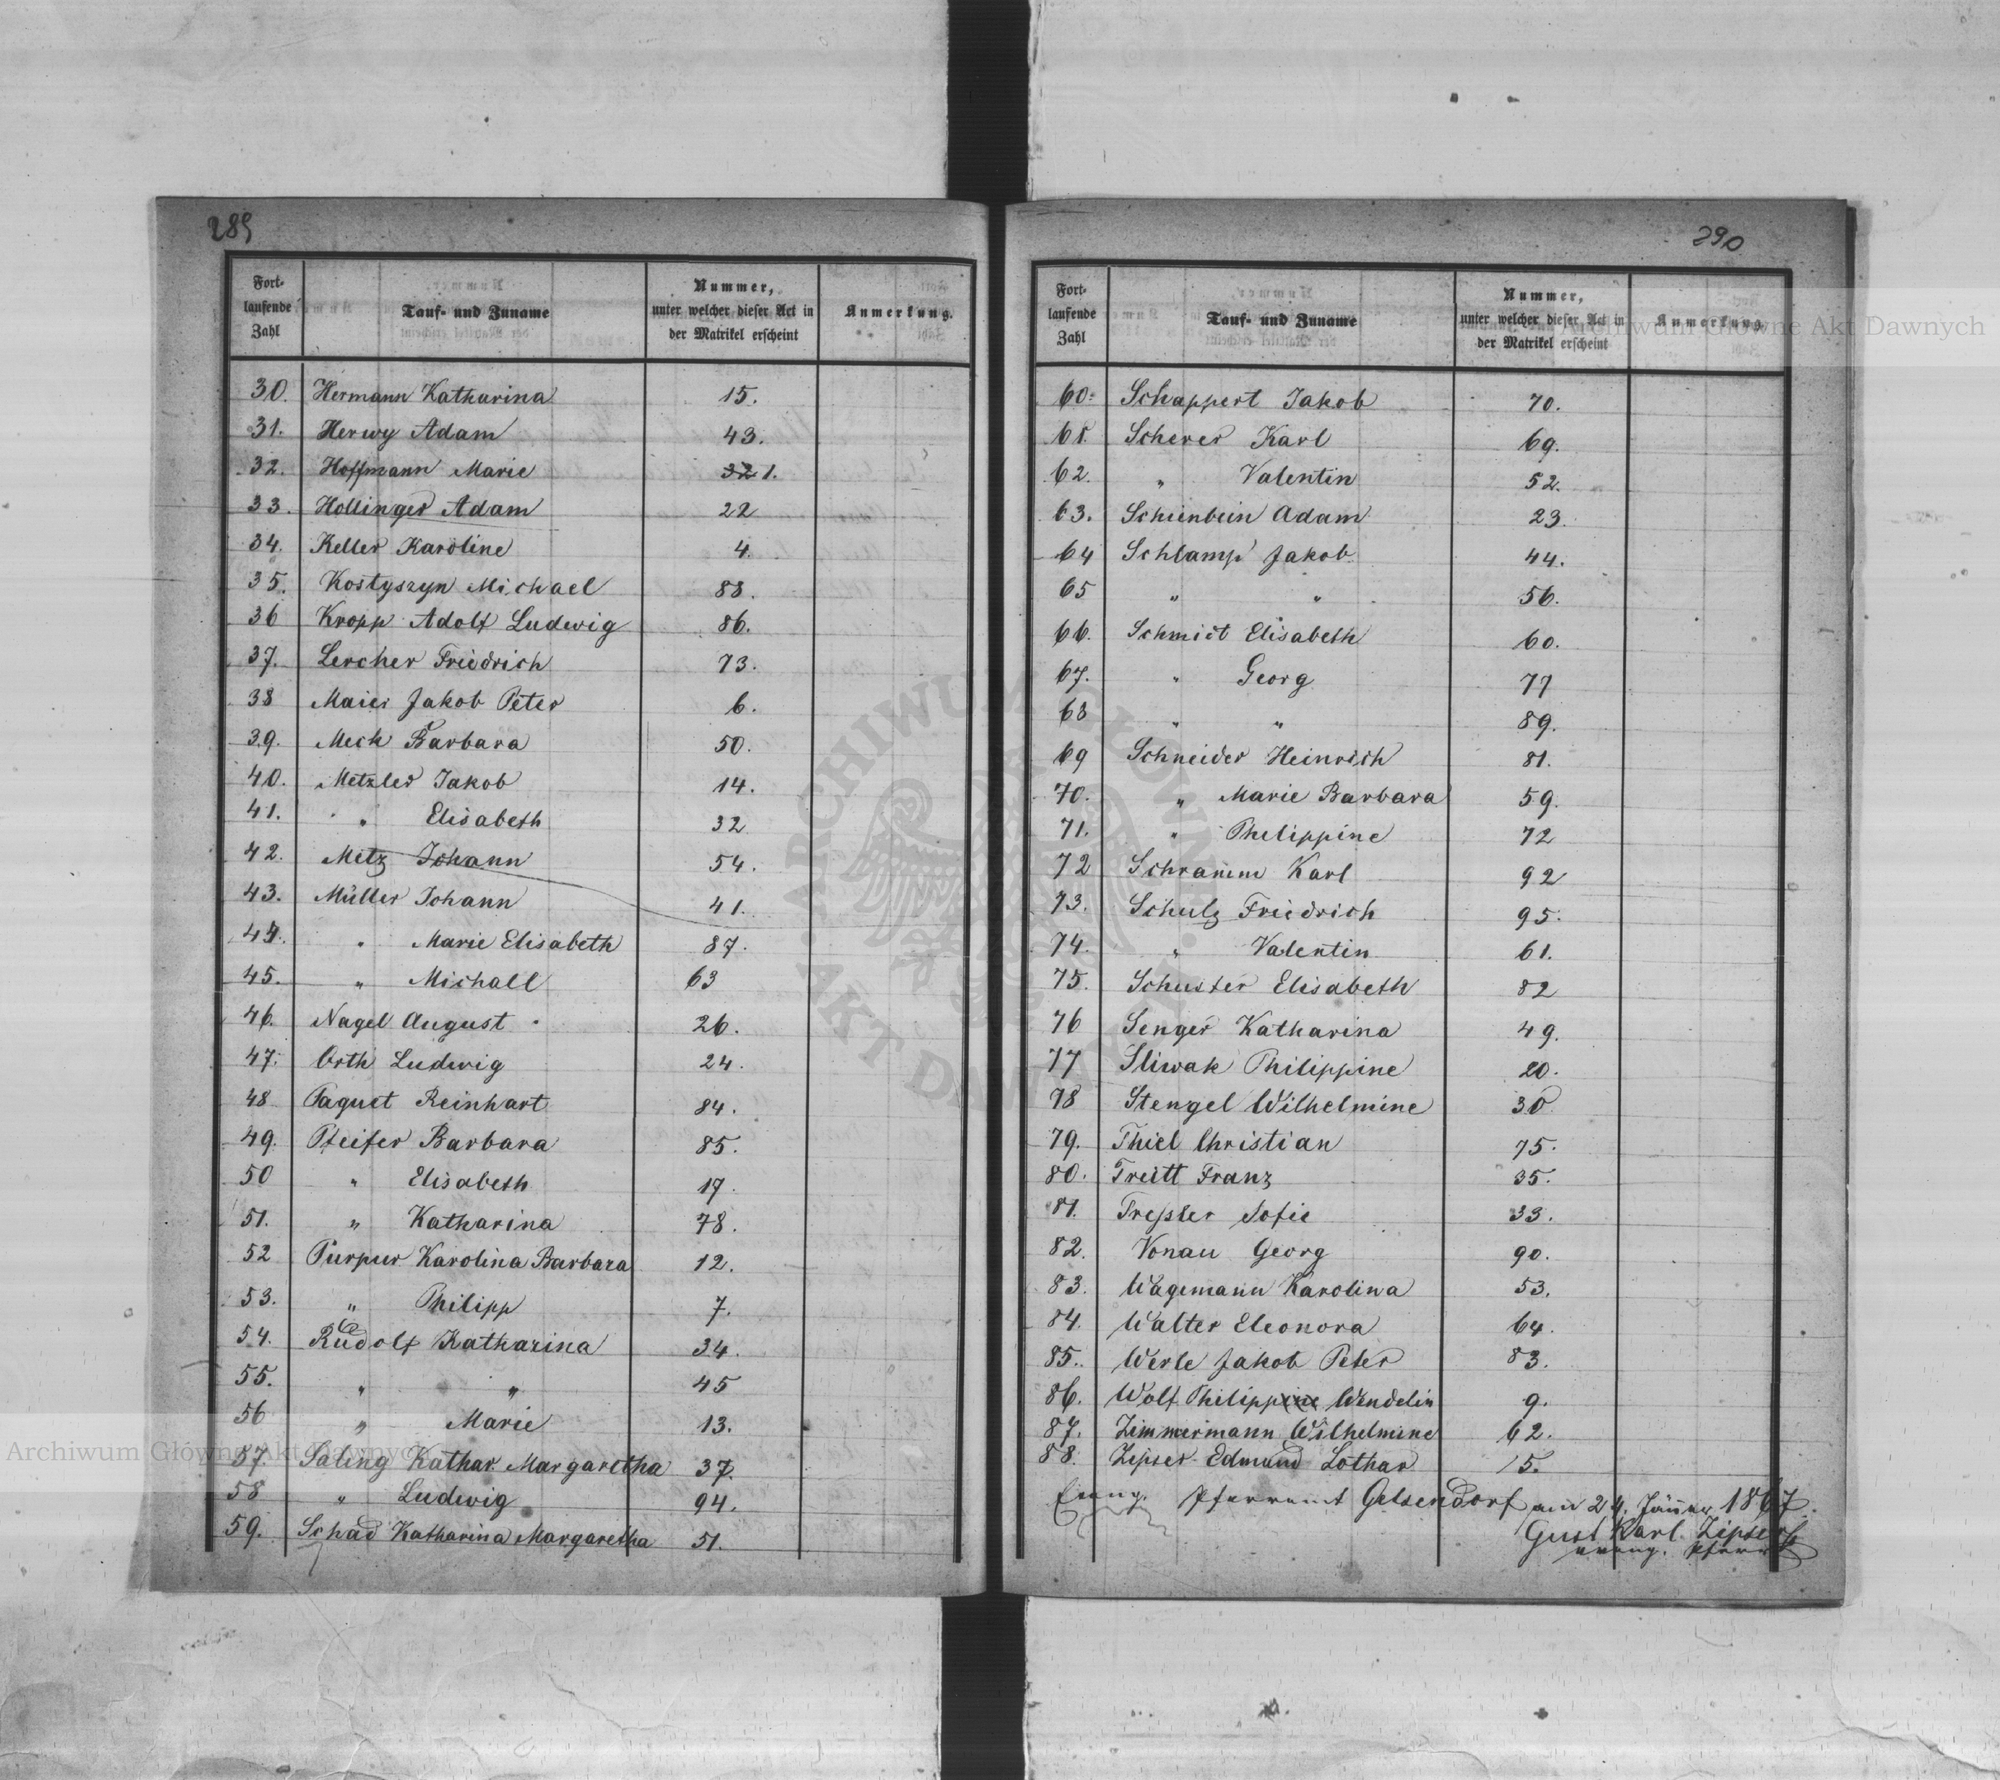 289
Fort-
laufende
Zahl
Tauf- und Zuname
Nummer,
unter welcher dieser Act in
der Matrikel erscheint
Anmerkung.
30. Hermann Katharina 15.
31. Herwy Adam 43.
32. Hoffmann Marie 32 1.
33. Hollinger Adam 22
34. Keller Karoline 4.
35. Kostyszyn Michael 88.
36 Kropp Adolf Ludwig 86.
37. Lercher Friedrich 73.
38 Maier Jakob Peter 6.
39. Meck Barbara 50.
40. Metzler Jakob 14.
41. " Elisabeth 32
42. Metz Johann 54.
43. Müller Johann 41.
44. " Marie Elisabeth 87.
45. " Michall 63
46. Nagel August 26.
47. Orth Ludwig 24.
48 Paquet Reinhart 84.
49. Pfeifer Barbara 85.
50 " Elisabeth 17.
51. " Katharina 78.
52 Purpur Karolina Barbara 12.
53. " Philipp 7.
54. Rudolf Katharina 34.
55. " " 45
56 " Marie 13.
57. Saling Kathar. Margaretha 37.
58 " Ludwig 94.
59. Schad Katharina Margaretha 51.
290
Fort-
laufende
Zahl
Tauf- und Zuname
Nummer,
unter welcher dieser Act in
der Matrikel erscheint
Anmerkung.
60. Schappert Jakob 70.
61. Scherer Karl 69.
62. " Valentin 52.
63. Scheinbein Adam 23
64 Schlamp Jakob 44.
65 " " 56.
66. Schmidt Elisabeth 60.
67. " Georg 77
68 " " 89.
69 Schneider Heinrich 81.
70. " Marie Barbara 59.
71. " Philippine 72
72 Schramm Karl 92
73. Schulz Friedrich 95.
74. " Valentin 61.
75. Schuster Elisabeth 82
76 Senger Katharina 49.
77 Sliwak Philippine 20.
78 Stengel Wilhelmine 30
79. Thiel Christian 75.
80. Treitt Franz 35.
81. Treßler Sofie 33.
82. Vonau Georg 90.
83. Wagemann Karolina 53.
84. Walter Eleonora 64.
85. Werle Jakob Peter 83.
86. Wolf Philippine Wendelin 9.
87. Zimmermann Wilhelmine 62.
88. Zipser Edmund Lothar 5.
Evang. Pfarramt Gelsendorf am 24. Jänner 1867.
Gust Karl Zipser
evang. Pfarrer
Archiwum Główne Akt Dawnych
Archiwum Główne Akt Dawnych
ARCHIWUM GŁÓWNE AKT DAWNYCH